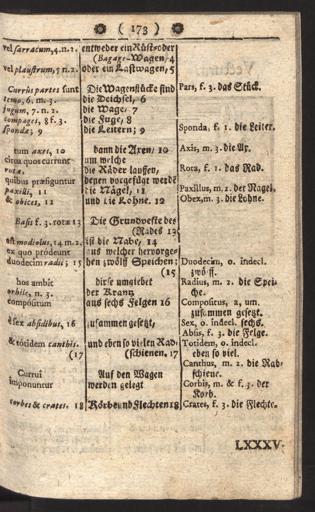 ( 173 )
vel sarracum, 4. n. 2. entweder ein Rüst= oder
(Bagage-Wagen, 4
vel plaustrum, 5 n. 2. oder ein Lastwagen, 5
Currûs partes sunt Die Wagenstücke sind Pars, f. 3. das Stück.
temo, 6. m. 3. die Deichsel, 6
jugum, 7. n. 2. die Wage, 7
compages, 8 f. 3. die Fuge, 8
spondæ; 9 die Leitern; 9 Sponda, f. 1. die Leiter.
tum axes, 10 dann die Axen, 10 Axis, m. 3. die Ax.
circa quos currunt um welche
rotæ, die Räder lauffen, Rota, f. 1. das Rad.
quibus præfiguntur denen vorgefügt werden
paxilli, 11 die Nägel, 11 Paxillus, m. 2. der Nagel.
& obices, 12 und die Lohne. 12 Obex, m. 3. die Lohne.
Basis f. 3. rotæ 13 Die Grundveste des
(Rades 13
est modiolus, 14 m. 2. ist die Nabe, 14
ex quo prodeunt aus welcher hervorge=
duodecim radii; 15 hen zwölff Speichen; Duodecim, o. indecl.
(15 zwölff.
hos ambit diese umgiebet Radius, m. 2. die Spei=
orbile, n. 3. der Krantz che.
compositum aus sechs Felgen 16 Compositus, a, um.
zusammen gesetzt.
è sex absidibus, 16 zusammen gesetzt, Sex, o. indecl. sechs.
Absis, f. 3. die Felge.
& totidem canthis. und eben so vielen Rad= Totidem, o. indecl.
(17 (schienen. 17 eben so viel.
Canthus, m. 2. die Rad=
schiene.
Currui Auf den Wagen
imponuntur werden gelegt Corbis, m. & f. 3. der
Korb.
corbes & crates. 18 Körbe und Flechten 18 Crates, f. 3. die Flechte.
LXXXV.